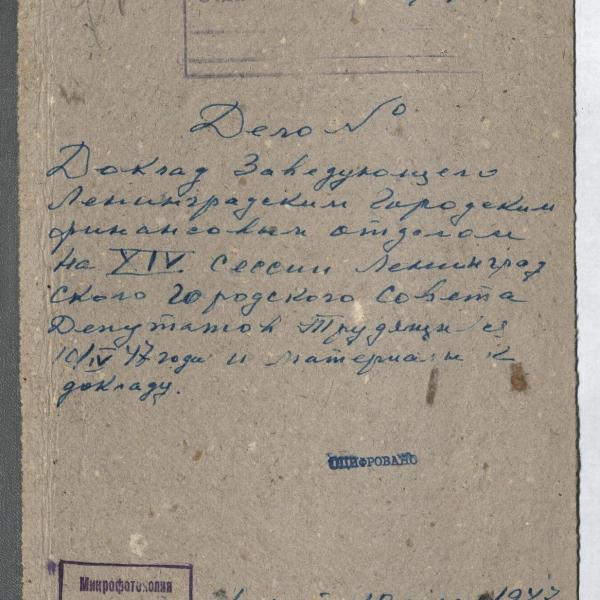 Дело №
Доклад Заведующего
Ленинградским Городским
финансовым отделом
на XIV сессии Ленинград
ского городского Совета
Депутатов Трудящихся
10/IV 47 года и материалы к
докладу.
ОЦИФРОВАНО
Микрофотокопия
1947